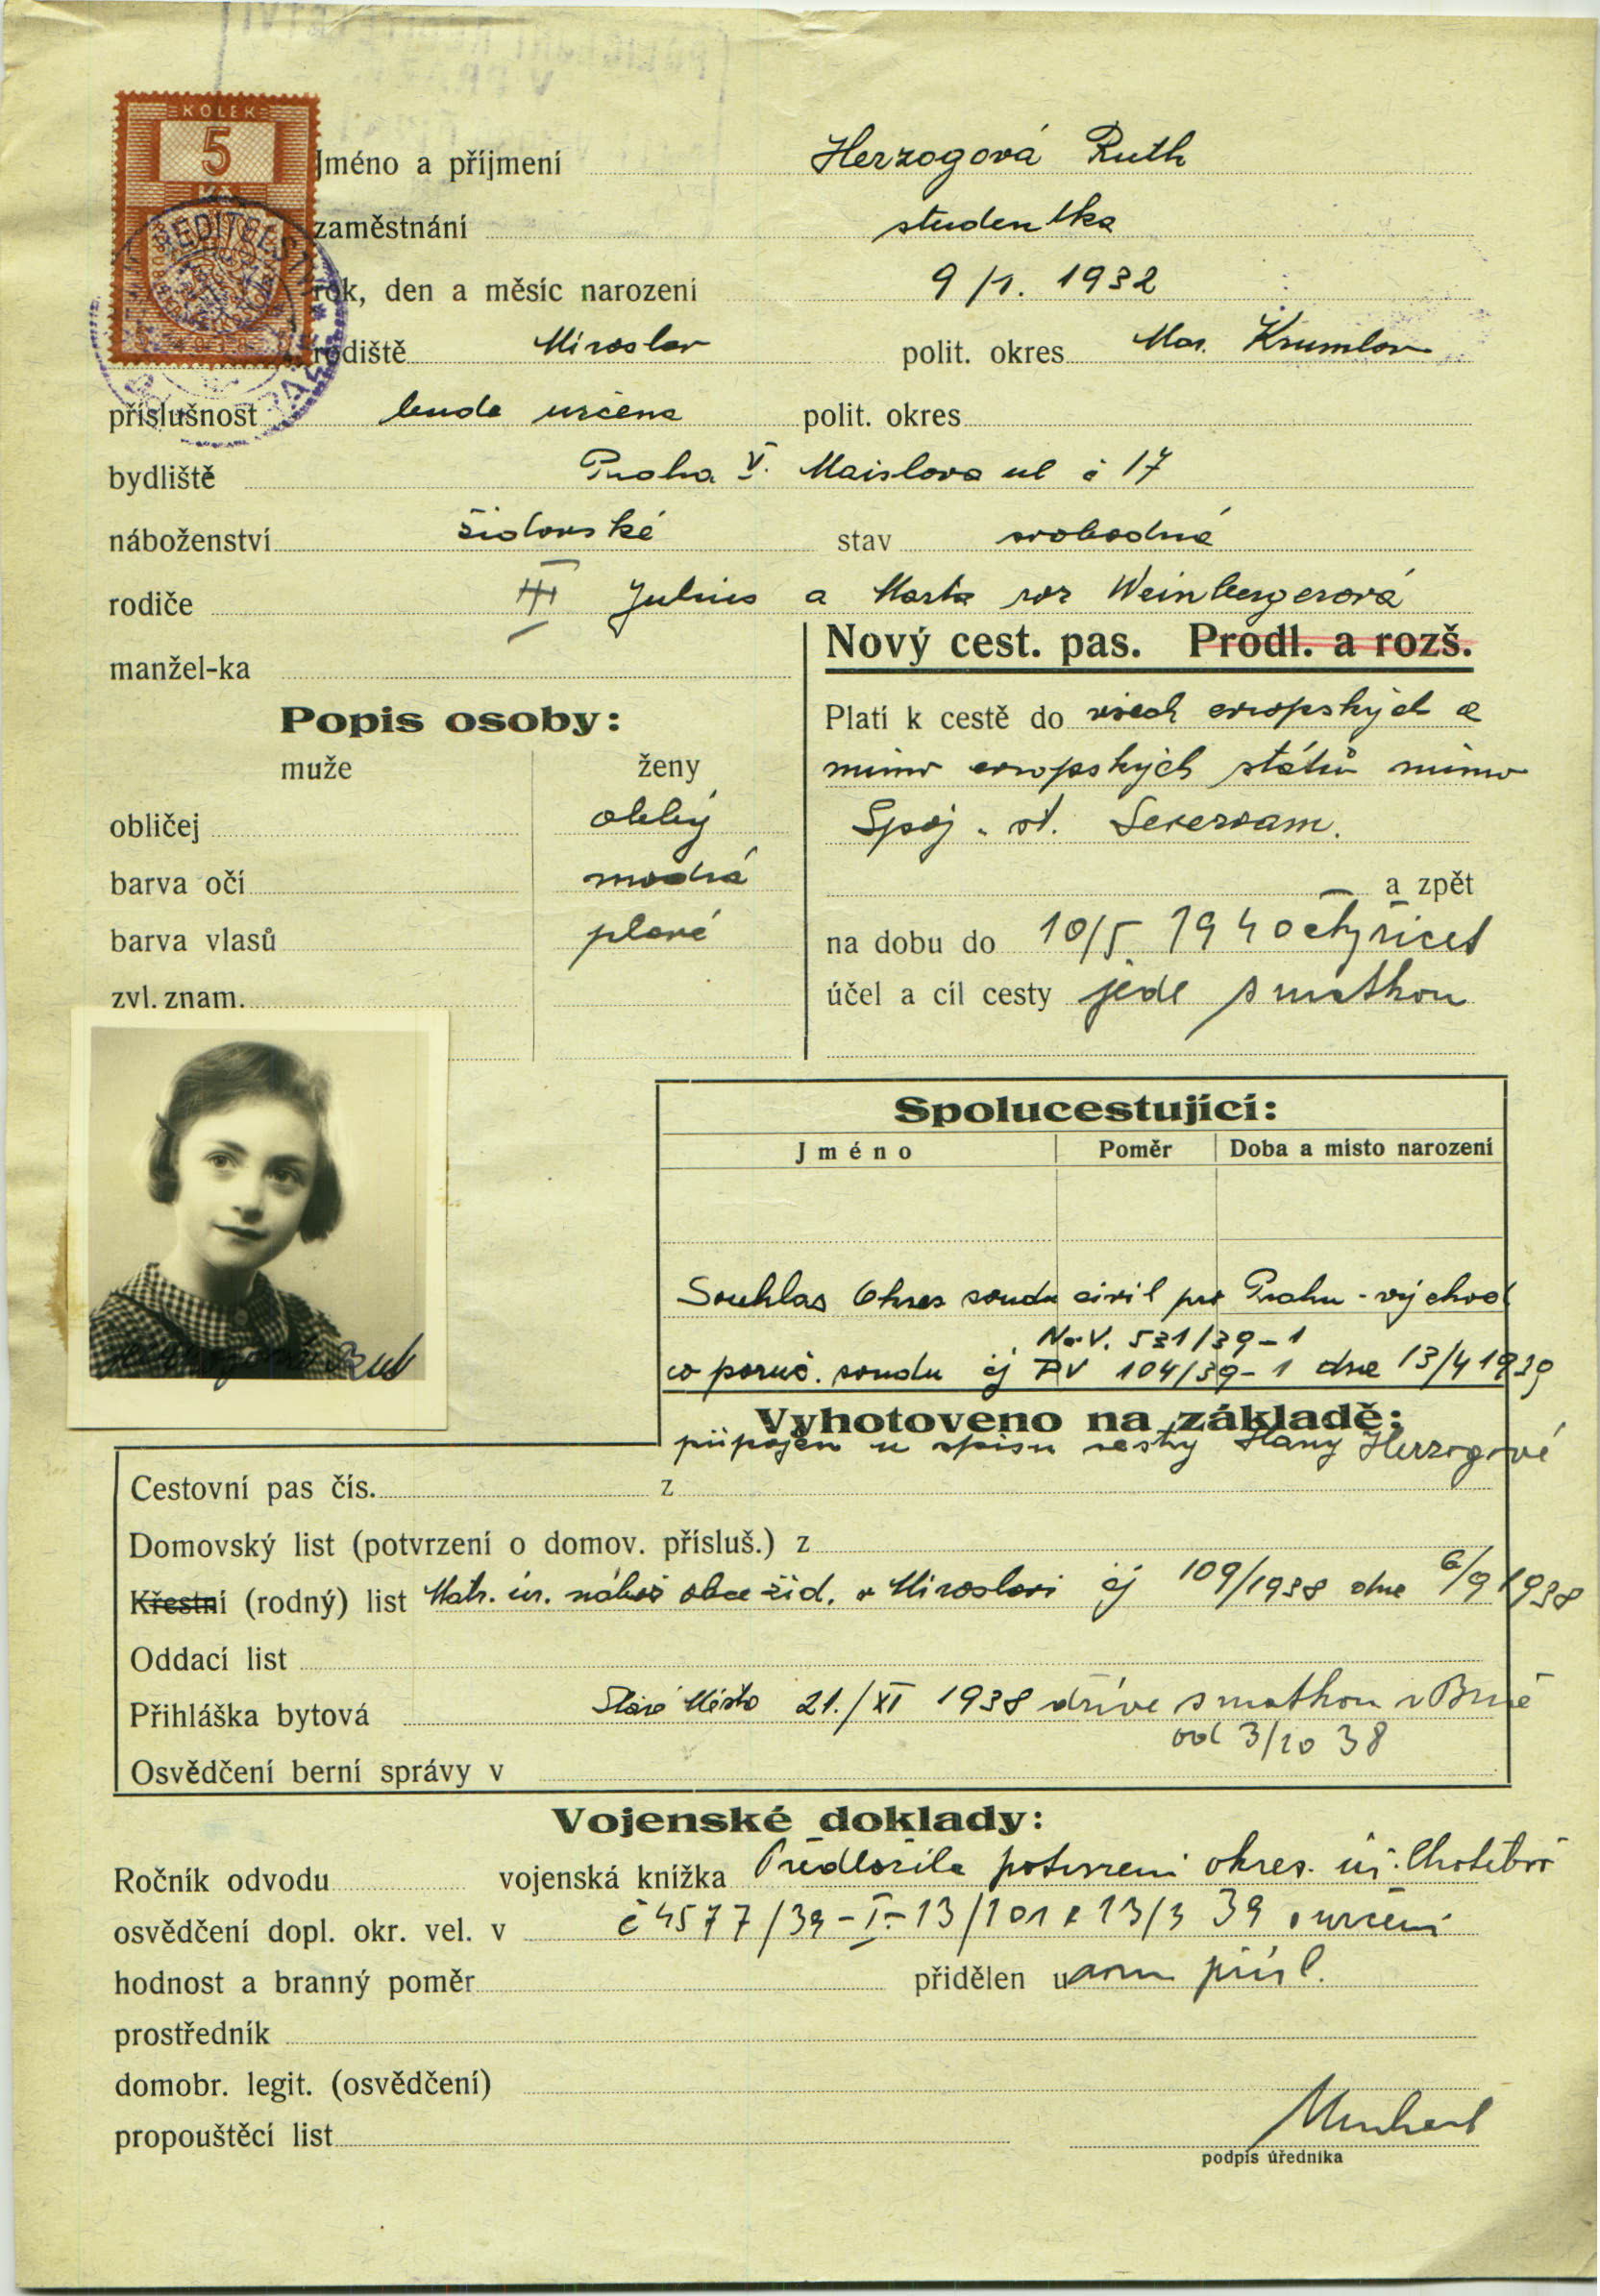 KOLEK
5
Kč
Jméno a příjmení Herzogová Ruth
zaměstnání studentka
rok, den a měsíc narození 9/1. 1932
rodiště Miroslav polit. okres Mor. Krumlov
příslušnost bude určena polit. okres
bydliště Praha V. Maislova ul č 17
náboženství židovské stav svobodná
rodiče III Julius a Marta roz Weinbergerová
manžel-ka
Nový cest. pas. Prodl. a rozš.
Popis osoby:
muže ženy
obličej oblý
barva očí modrá
barva vlasů plavé
zvl. znam.
Platí k cestě do všech evropských a
mimo evropských států mimo
Spoj. st. Severoam.
a zpět
na dobu do 10/5. 1940 čtyřicet
účel a cíl cesty jede s matkou
Spolucestující:
Jméno Poměr Doba a místo narození
Souhlas Okres soudu civil pro Prahu-východ
Nc V. 531/39-1
co poruč. soudu čj PV 104/39-1 dne 13/4 1939
Vyhotoveno na základě:
připojen u spisu sestry Hany Herzogové
Cestovní pas čís. z
Domovský list (potvrzení o domov. přísluš.) z
Křestní (rodný) list Matr. úř. nábož obce žid. v Miroslavi čj 109/1938 dne 6/9 1938
Oddací list
Přihláška bytová Staré Město 21./XI 1938 dříve s matkou v Brně
od 3/10 38
Osvědčení berní správy v
Vojenské doklady:
Ročník odvodu vojenská knížka Předložila potvrzení okres. úř. Chotěboř
osvědčení dopl. okr. vel. v č 4577/39-I-13/101 z 13/3 39 o určení
hodnost a branný poměr přidělen u přísl.
prostředník
domobr. legit. (osvědčení)
propouštěcí list
podpis úředníka